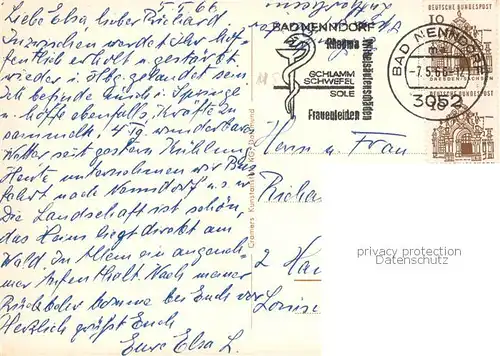 5.5.66
Liebe Elsa, lieber Richard
Inzwischen werdet Ihr hof-
fentlich erholt und gestärkt
wieder i. Hbg. gelandet sein.
Ich befinde mich i. Springe
u. hoffe ebenfalls, Kräfte zu
sammeln. 4 Tg. wunderbares
Wetter seit gestern Kühlung
Heute unternehmen wir Bus
fahrt nach Nenndorf u.s.w.
Die Landschaft ist schön,
das Heim liegt direkt am
Wald. In Allem ein angeneh-
mer Aufenthalt. Nach meiner
Rückkehr komme bei Euch vor
Herzlich grüßt Euch
Eure Elsa L.
BAD NENNDORF
Rheuma
SCHLAMM
SCHWEFEL
SOLE
Frauenleiden
BAD NENNDORF
-7.5.66-
3052
DEUTSCHE BUNDESPOST
DEUTSCHE BUNDESPOST
Cramers Kunstanstalt KG, Dortmund
Herrn u. Frau
Richa
2 Ha
Louise
privacy protection
Datenschutz